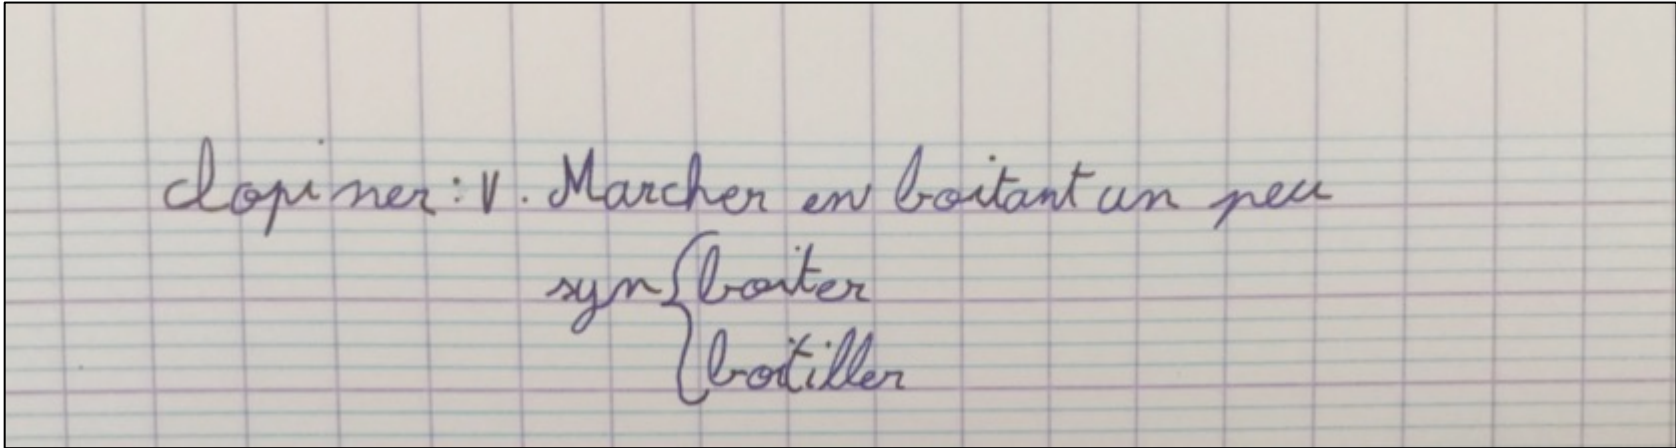 clopiner : v. Marcher en boitant un peu
syn { boiter
boitiller